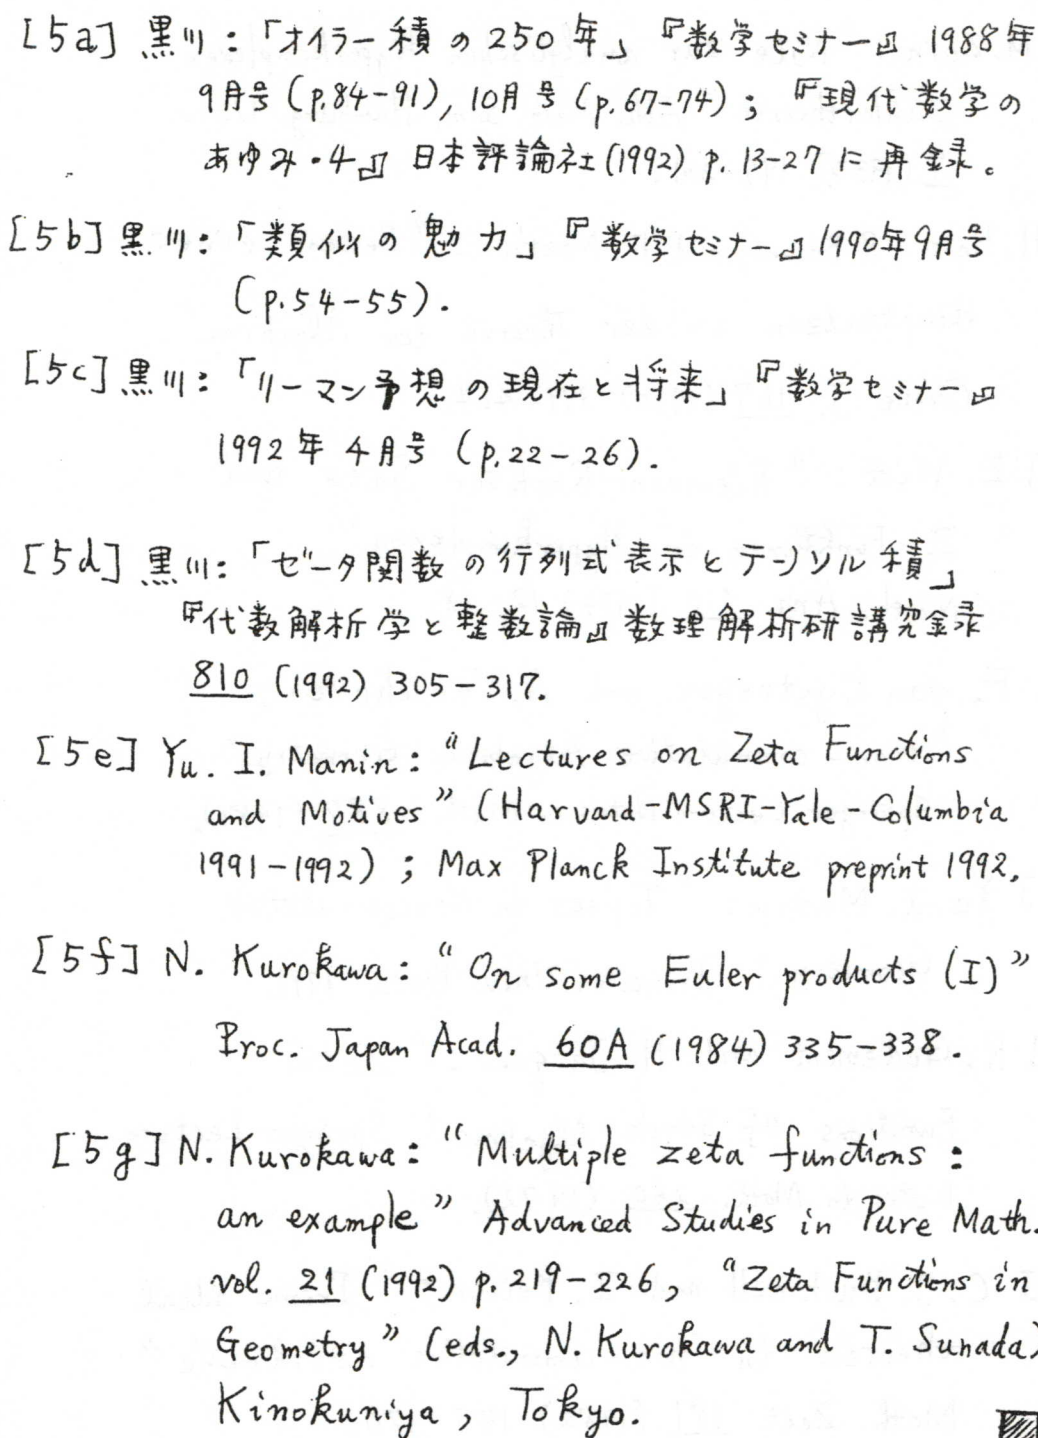 [5a] 黒川：「オイラー積の250年」『数学セミナー』1988年
9月号 (p.84-91), 10月号 (p.67-74)；『現代数学の
あゆみ・4』日本評論社 (1992) p.13-27 に再録。
[5b] 黒川：「類似の魅力」『数学セミナー』1990年9月号
(p.54-55).
[5c] 黒川：「リーマン予想の現在と将来」『数学セミナー』
1992年4月号 (p.22-26).
[5d] 黒川：「ゼータ関数の行列式表示とテンソル積」
『代数解析学と整数論』数理解析研講究録
810 (1992) 305-317.
[5e] Yu. I. Manin: "Lectures on Zeta Functions
and Motives" (Harvard-MSRI-Yale-Columbia
1991-1992) ; Max Planck Institute preprint 1992.
[5f] N. Kurokawa: "On some Euler products (I)"
Proc. Japan Acad. 60A (1984) 335-338.
[5g] N. Kurokawa: "Multiple zeta functions:
an example" Advanced Studies in Pure Math.
vol. 21 (1992) p. 219-226, "Zeta Functions in
Geometry" (eds., N. Kurokawa and T. Sunada)
Kinokuniya, Tokyo.